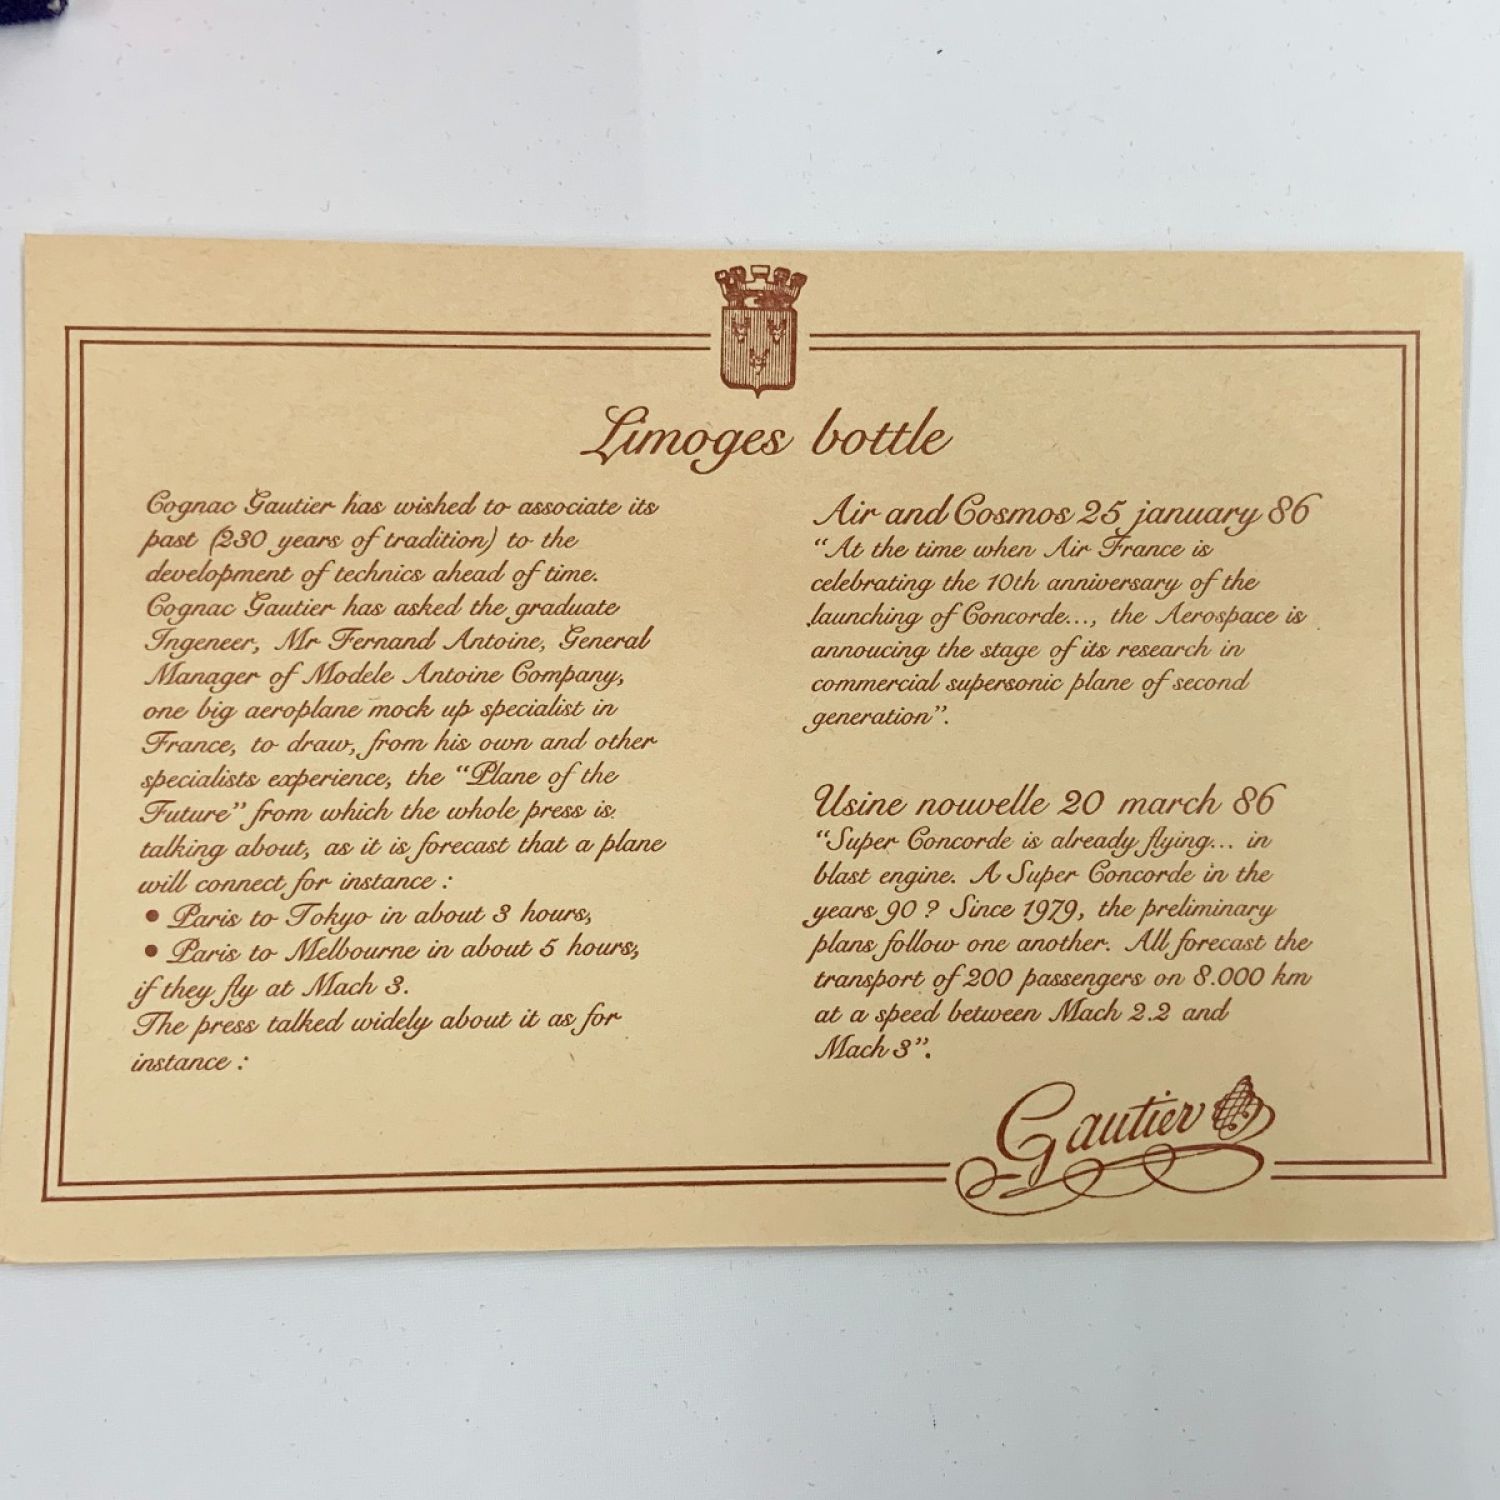 Limoges bottle
Cognac Gautier has wished to associate its
past (230 years of tradition) to the
development of technics ahead of time.
Cognac Gautier has asked the graduate
Ingeneer, Mr Fernand Antoine, General
Manager of Modele Antoine Company,
one big aeroplane mock up specialist in
France, to draw, from his own and other
specialists experience, the “Plane of the
Future” from which the whole press is
talking about, as it is forecast that a plane
will connect for instance :
• Paris to Tokyo in about 3 hours,
• Paris to Melbourne in about 5 hours,
if they fly at Mach 3.
The press talked widely about it as for
instance :
Air and Cosmos 25 january 86
“At the time when Air France is
celebrating the 10th anniversary of the
launching of Concorde..., the Aerospace is
annoucing the stage of its research in
commercial supersonic plane of second
generation”.
Usine nouvelle 20 march 86
“Super Concorde is already flying... in
blast engine. A Super Concorde in the
years 90 ? Since 1979, the preliminary
plans follow one another. All forecast the
transport of 200 passengers on 8.000 km
at a speed between Mach 2.2 and
Mach 3”.
Gautier